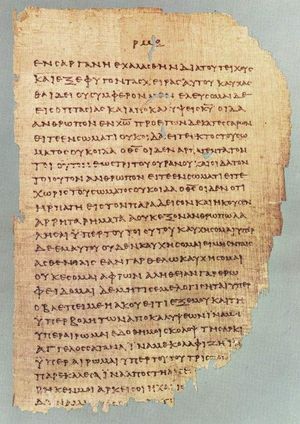 ΕΝΣΑΡΓΑΝΗΕΧΑΛΑΣΘΗΝΔΙΑΤΟΥΤΕΙΧΟΥΣ
ΚΑΙΕΞΕΦΥΓΟΝΤΑΣΧΕΙΡΑΣΑΥΤΟΥΚΑΥΧΑΣ
ΘΑΙΔΕΙΟΥΣΥΜΦΕΡΟΝΜΕΝΕΛΕΥΣΟΜΑΙΔΕ
ΕΙΣΟΠΤΑΣΙΑΣΚΑΙΑΠΟΚΑΛΥΨΕΙΣΚΥΟΙΔΑ
ΑΝΘΡΩΠΟΝΕΝΧΡΩΠΡΟΕΤΩΝΔΕΚΑΤΕΣΣΑΡΩΝ
ΕΙΤΕΕΝΣΩΜΑΤΙΟΥΚΟΙΔΑΕΙΤΕΕΚΤΟΣΤΟΥΣΩ
ΜΑΤΟΣΟΥΚΟΙΔΑΟΘΣΟΙΔΕΝΑΡΠΑΓΕΝΤΑΤΟΝ
ΤΟΙΟΥΤΟΝΕΩΣΤΡΙΤΟΥΟΥΡΑΝΟΥΚΑΙΟΙΔΑΤΟΝ
ΤΟΙΟΥΤΟΝΑΝΘΡΩΠΟΝΕΙΤΕΕΝΣΩΜΑΤΙΕΙΤΕ
ΧΩΡΙΣΤΟΥΣΩΜΑΤΟΣΟΥΚΟΙΔΑΟΘΣΟΙΔΕΝΟΤΙ
ΗΡΠΑΓΗΕΙΣΤΟΝΠΑΡΑΔΕΙΣΟΝΚΑΙΗΚΟΥΣΕΝ
ΑΡΡΗΤΑΡΗΜΑΤΑΑΟΥΚΕΞΟΝΑΝΘΡΩΠΩΛΑ
ΛΗΣΑΙΥΠΕΡΤΟΥΤΟΙΟΥΤΟΥΚΑΥΧΗΣΟΜΑΙΥΠΕΡ
ΔΕΕΜΑΥΤΟΥΟΥΔΕΝΚΑΥΧΗΣΟΜΑΙΕΙΜΗΕΝΤΑΙΣ
ΑΣΘΕΝΕΙΑΙΣΕΑΝΓΑΡΘΕΛΩΚΑΥΧΗΣΟΜΑΙ
ΟΥΚΕΣΟΜΑΙΑΦΡΩΝΑΛΗΘΕΙΑΝΓΑΡΕΡΩ
ΦΕΙΔΟΜΑΙΔΕΜΗΤΙΣΕΜΕΛΟΓΙΣΗΤΑΙΥΠΕΡ
ΟΒΛΕΠΕΙΜΕΗΑΚΟΥΕΙΤΙΕΞΕΜΟΥΚΑΙΤΗ
ΥΠΕΡΒΟΛΗΤΩΝΑΠΟΚΑΛΥΨΕΩΝΙΝΑΜΗ
ΥΠΕΡΑΙΡΩΜΑΙΕΔΟΘΗΜΟΙΣΚΟΛΟΨΤΗΣΑΡΚΙ
ΑΓΓΕΛΟΣΣΑΤΑΝΑΙΝΑΜΕΚΟΛΑΦΙΖΗΙΝΑ
ΥΠΕΡΑΙΡΩΜΑΙΥΠΕΡΤΟΥΤΟΥΤΡΙΣ
ΠΑΡΕΚΑΛΕΣΑΙΝΑΑΠΟΣΤΗ
ΡΗΚΕΝΜΟΙΑΡΚΕΙΣΟΙΗΧΑΡΙΣ